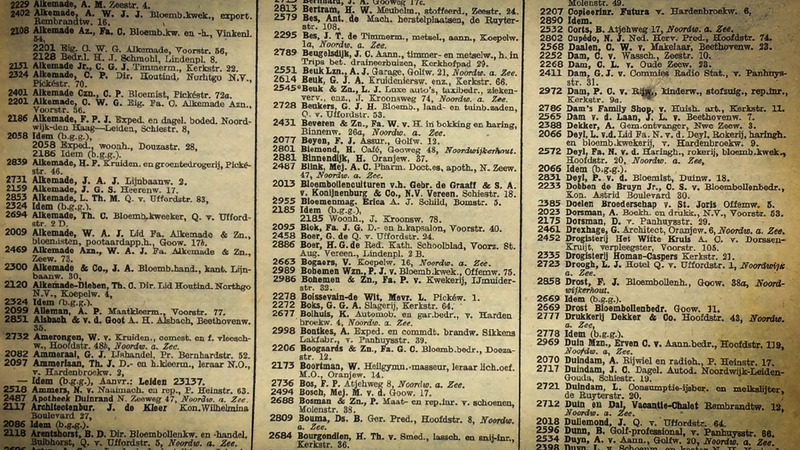 2229 Alkemade, A. M. Zeestr. 4.
2402 Alkemade, A. W. J. J. Bloemb.kwek., export.
Rembrandtw. 16.
2108 Alkemade Az., Fa. C. Bloemb.kw. en -h., Vinkenl.
54.
2201 Eig. C. W. G. Alkemade, Voorstr. 56,
2128 Bedr.l. H. J. Schmohl, Lindenpl. 8.
2151 Alkemade Jr., C. G. J. Timmerm., Kerkstr. 22.
2324 Alkemade, C. P. Dir. Houtind. Northgo N.V.,
Pickéstr. 70.
2401 Alkemade Czn., C. P. Bloemist, Pickéstr. 72a.
2201 Alkemade, C. W. G. Eig. Fa. C. Alkemade Azn.,
Voorstr. 56.
2186 Alkemade, F. P. J. Exped. en dagel. boded. Noord-
wijk-den Haag—Leiden, Schiestr. 8,
2058 Idem (b.g.g.).
2058 Exped., woonh., Douzastr. 28,
2186 Idem (b.g.g.).
2839 Alkemade, H. P. Kruiden. en groentedrogerij, Pické-
str. 46.
2731 Alkemade, J. A. J. Lijnbaanw. 2.
2159 Alkemade, J. G. S. Heerenw. 17.
2853 Alkemade, L. Th. M. Q. v. Uffordstr. 83,
2324 Idem (b.g.g.).
2694 Alkemade, Th. C. Bloemb.kweeker, Q. v. Ufford-
str. 2 D.
2009 Alkemade, W. A. J. Lid Fa. Alkemade & Zn.,
bloemisten, pootaardapp.h., Goow. 17b.
2469 Alkemade Azn., W. A. J. Fa. Alkemade & Zn.,
Zeew. 73.
2300 Alkemade & Co., J. A. Bloemb.hand., kant. Lijn-
baanw. 30.
2120 Alkemade-Dieben, Th. C. Dir. Lid Houtind. Northgo
N.V., Koepelw. 4,
2324 Idem (b.g.g.).
2099 Alleman, A. P. Maatkleerm., Voorstr. 77.
2851 Alsbach & v. d. Goot A. H. Alsbach, Beethovenw.
35.
2732 Amerongen, W. v. Kruiden., comest. en f. vleesch-
w., Hoofdstr. 48b, Noordw. a. Zee.
2082 Ammeraal, G. J. IJshandel, Pr. Bernhardstr. 52.
2097 Amerlaan, Th. J. D.- en h.kleerm., leraar N.O.,
v. Hardenbroekw. 2,
— Idem (b.g.g.), Aanvr.: Leiden 23137.
2518 Ammers, N. v. Naaimach. en rep., P. Heinstr. 63.
2487 Apotheek Duinrand N. Zeeweg 47, Noordw. a. Zee.
2117 Architectenbur. J. de Kleer Kon.Wilhelmina
Boulevard 27,
2086 Idem (b.g.g.).
2118 Arentshorst, B. D. Dir. Bloembollenkw. en -handel.
Bulbhorst, Q. v. Uffordstr. 5, Noordw. a. Zee.
Bernhard, J. A. Gooweg 17c.
2813 Bertram, H. W. Meubelm., stoffeerd., Zeestr. 24.
2579 Bes, Ant. de Mach. herstelplaatsen, de Ruyter-
str. 108.
2295 Bes, J. T. de Timmerm., metsel., aann., Koepelw.
1a, Noordw. a. Zee.
2789 Beugelsdijk, J. C. Aann., timmer- en metselw., h. in
Trips bet. draineerbuizen, Kerkhofpad 29.
2551 Beuk Lzn., A. J. Garage, Golfw. 21, Noordw. a. Zee.
2614 Beuk, G. J. A. Kruideniersw. enz., Kerkstr. 68.
2545 Beuk & Zn., L. J. Luxe auto's, taxibedr., zieken-
verv., enz., J. Kroonsweg 74, Noordw. a. Zee.
2728 Beukers, G. J. H. Bloemb., land- en tuinb.zaden,
Q. v. Uffordstr. 53.
2431 Beveren & Zn., Fa. W. v. H. in bokking en haring,
Binnenw. 26a, Noordw. a. Zee.
2077 Beyen, F. J. Assur., Golfw. 12.
2801 Blemond, H. Café, Gooweg 48, Noordwijkerhout.
2881 Binnendijk, H. Oranjew. 37.
2487 Blink, Mej. A. C. Pharm. Doct.es, apoth., N. Zeew.
47, Noordw. a. Zee.
2013 Bloembollenculturen v.h. Gebr. de Graaff & S. A.
v. Konijnenburg & Co., N.V. Vereen. Schiestr. 18.
2955 Bloemenmag. Erica A. J. Schild, Bomstr. 5.
2185 Idem (b.g.g.).
2185 Woonh., J. Kroonsw. 78.
2095 Blok, Fa. J. G. D.- en h.kapsalon, Voorstr. 40.
2458 Boer, G. de Q. v. Uffordstr. 94.
2886 Boer, H. G. de Red. Kath. Schoolblad, Voorz. St.
Aug. Vereen., Lindenpl. 2 B.
2663 Bogaers, V. Koepelw. 16, Noordw. a. Zee.
2989 Bohemen Wzn., P. J. v. Bloemb.kwek., Offemw. 75.
2986 Bohemen & Zn., Fa. P. v. Kwekerij, IJmuider-
str. 32.
2278 Boissevain-de Wit, Mevr. L. Pickéw. 1.
2272 Boks, G. G. A. Slagerij, Kerkstr. 64.
2671 Bolhuis, K. Automob. en gar.bedr., v. Harden
broekw. 4, Noordw. a. Zee.
2998 Bontkes, A. Exped. en commdt. brandw. Sikkens
Lakfabr., v. Panhuysstr. 39.
2206 Boogaards & Zn., Fa. G. C. Bloemb.bedr., Doeza-
str. 12.
2173 Boortman, W. Heilgymn.-masseur, leraar lich.oef.
M.O., Oranjew. 14.
2736 Bos, F. P. Atjehweg 8, Noordw. a. Zee.
2494 Bosch, Mej. M. v. d. Goow. 17.
2688 Bosman & Zn., P. Maat- en rep.inr. v. schoenen,
Molenstr. 38.
2809 Bouma, Ds. B. Ger. Pred., Hoofdstr. 8, Noordw.
a. Zee.
2684 Bourgondien, H. Th. v. Smed., lassch. en snij-inr.,
Kerkstr. 36.
Molenstr. 4.
2207 Copieerinr. Futura v. Hardenbroekw. 6,
2890 Idem.
2532 Corts, B. Atjehweg 17, Noordw. a. Zee.
2802 Cupédo, N. J. Ned. Herv. Pred., Hoofdstr. 74.
2568 Daalen, C. W. v. Makelaar, Beethovenw. 23.
2252 Dam, C. W. v. Wassch., Zeestr. 10.
2268 Dam, C. L. v. Oude Zeew. 23.
2411 Dam, G. J. v. Commies Radio Stat., v. Panhuys-
str. 31.
2972 Dam, P. C. v. Rijw., kinderw., stofzuig., rep.inr.,
Kerkstr. 9a.
2786 Dam's Family Shop, v. Huish. art., Kerkstr. 11.
2565 Dam v. d. Laan, J. L. v. Beethovenw. 7.
2388 Dekker, A. Gem.ontvanger, Nwe Zeew. 3.
2066 Deyl, L. v.d. Lid Fa. N. v. d. Deyl, Rokerij, haringh.
en bloemb.kwekerij, v. Hardenbroekw. 9.
2572 Deyl, Fa. N. v. d. Haringh., rokerij, bloemb.kwek.,
Hoofdstr. 20, Noordw. a. Zee,
2066 Idem (b.g.g.).
2831 Deyl, P. v. d. Bloemist, Duinw. 18.
2233 Dobben de Bruyn Jr., C. S. v. Bloembollenbedr.,
Kon. Astrid Boulevard 30.
2385 Doelen Broederschap v. St. Joris Offemw. 5.
2023 Dorsman, A. Boekh. en drukk., N.V., Voorstr. 53.
2175 Dorsman, D. v. Panhuysstr. 29.
2461 Drexhage, G. Architect, Oranjew. 6, Noordw. a. Zee.
2452 Drogisterij Het Witte Kruis A. C. v. Dorssen-
Kruijt, verpleegster, Voorstr. 105.
2335 Drogisterij Homan-Caspers Kerkstr. 21.
2723 Droogh, L. J. Hotel Q. v. Uffordstr. 1, Noordwijk
a. Zee.
2858 Drost, F. J. Bloembollenh., Goow. 38a, Noord-
wijkerhout.
2669 Idem (b.g.g.).
2669 Drost Bloembollenbedr. Goow. 71.
2777 Drukkerij Dekker & Co. Hoofdstr. 43, Noordw.
a. Zee,
2778 Idem (b.g.g.).
2969 Duin Mzn., Erven C. v. Aann.bedr., Hoofdstr. 119,
Noordw. a. Zee.
2070 Duindam, A. Rijwiel en radioh., P. Heinstr. 17.
2717 Duindam, J. C. Dagel. Autod. Noordwijk-Leiden-
Gouda, Schiestr. 19.
2721 Duindam, L. Consumptie-ijsber. en melkslijter,
de Ruyterstr. 20.
2712 Duin en Dal, Vacantie-Chalet Rembrandtw. 12,
Noordw. a. Zee.
2018 Dullemond, J. Q. v. Uffordstr. 64.
2596 Dunn, B. Golf-professional, v. Panhuysstr. 86.
2534 Duyn, A. v. Aann., Golfw. 20, Noordw. a. Zee.